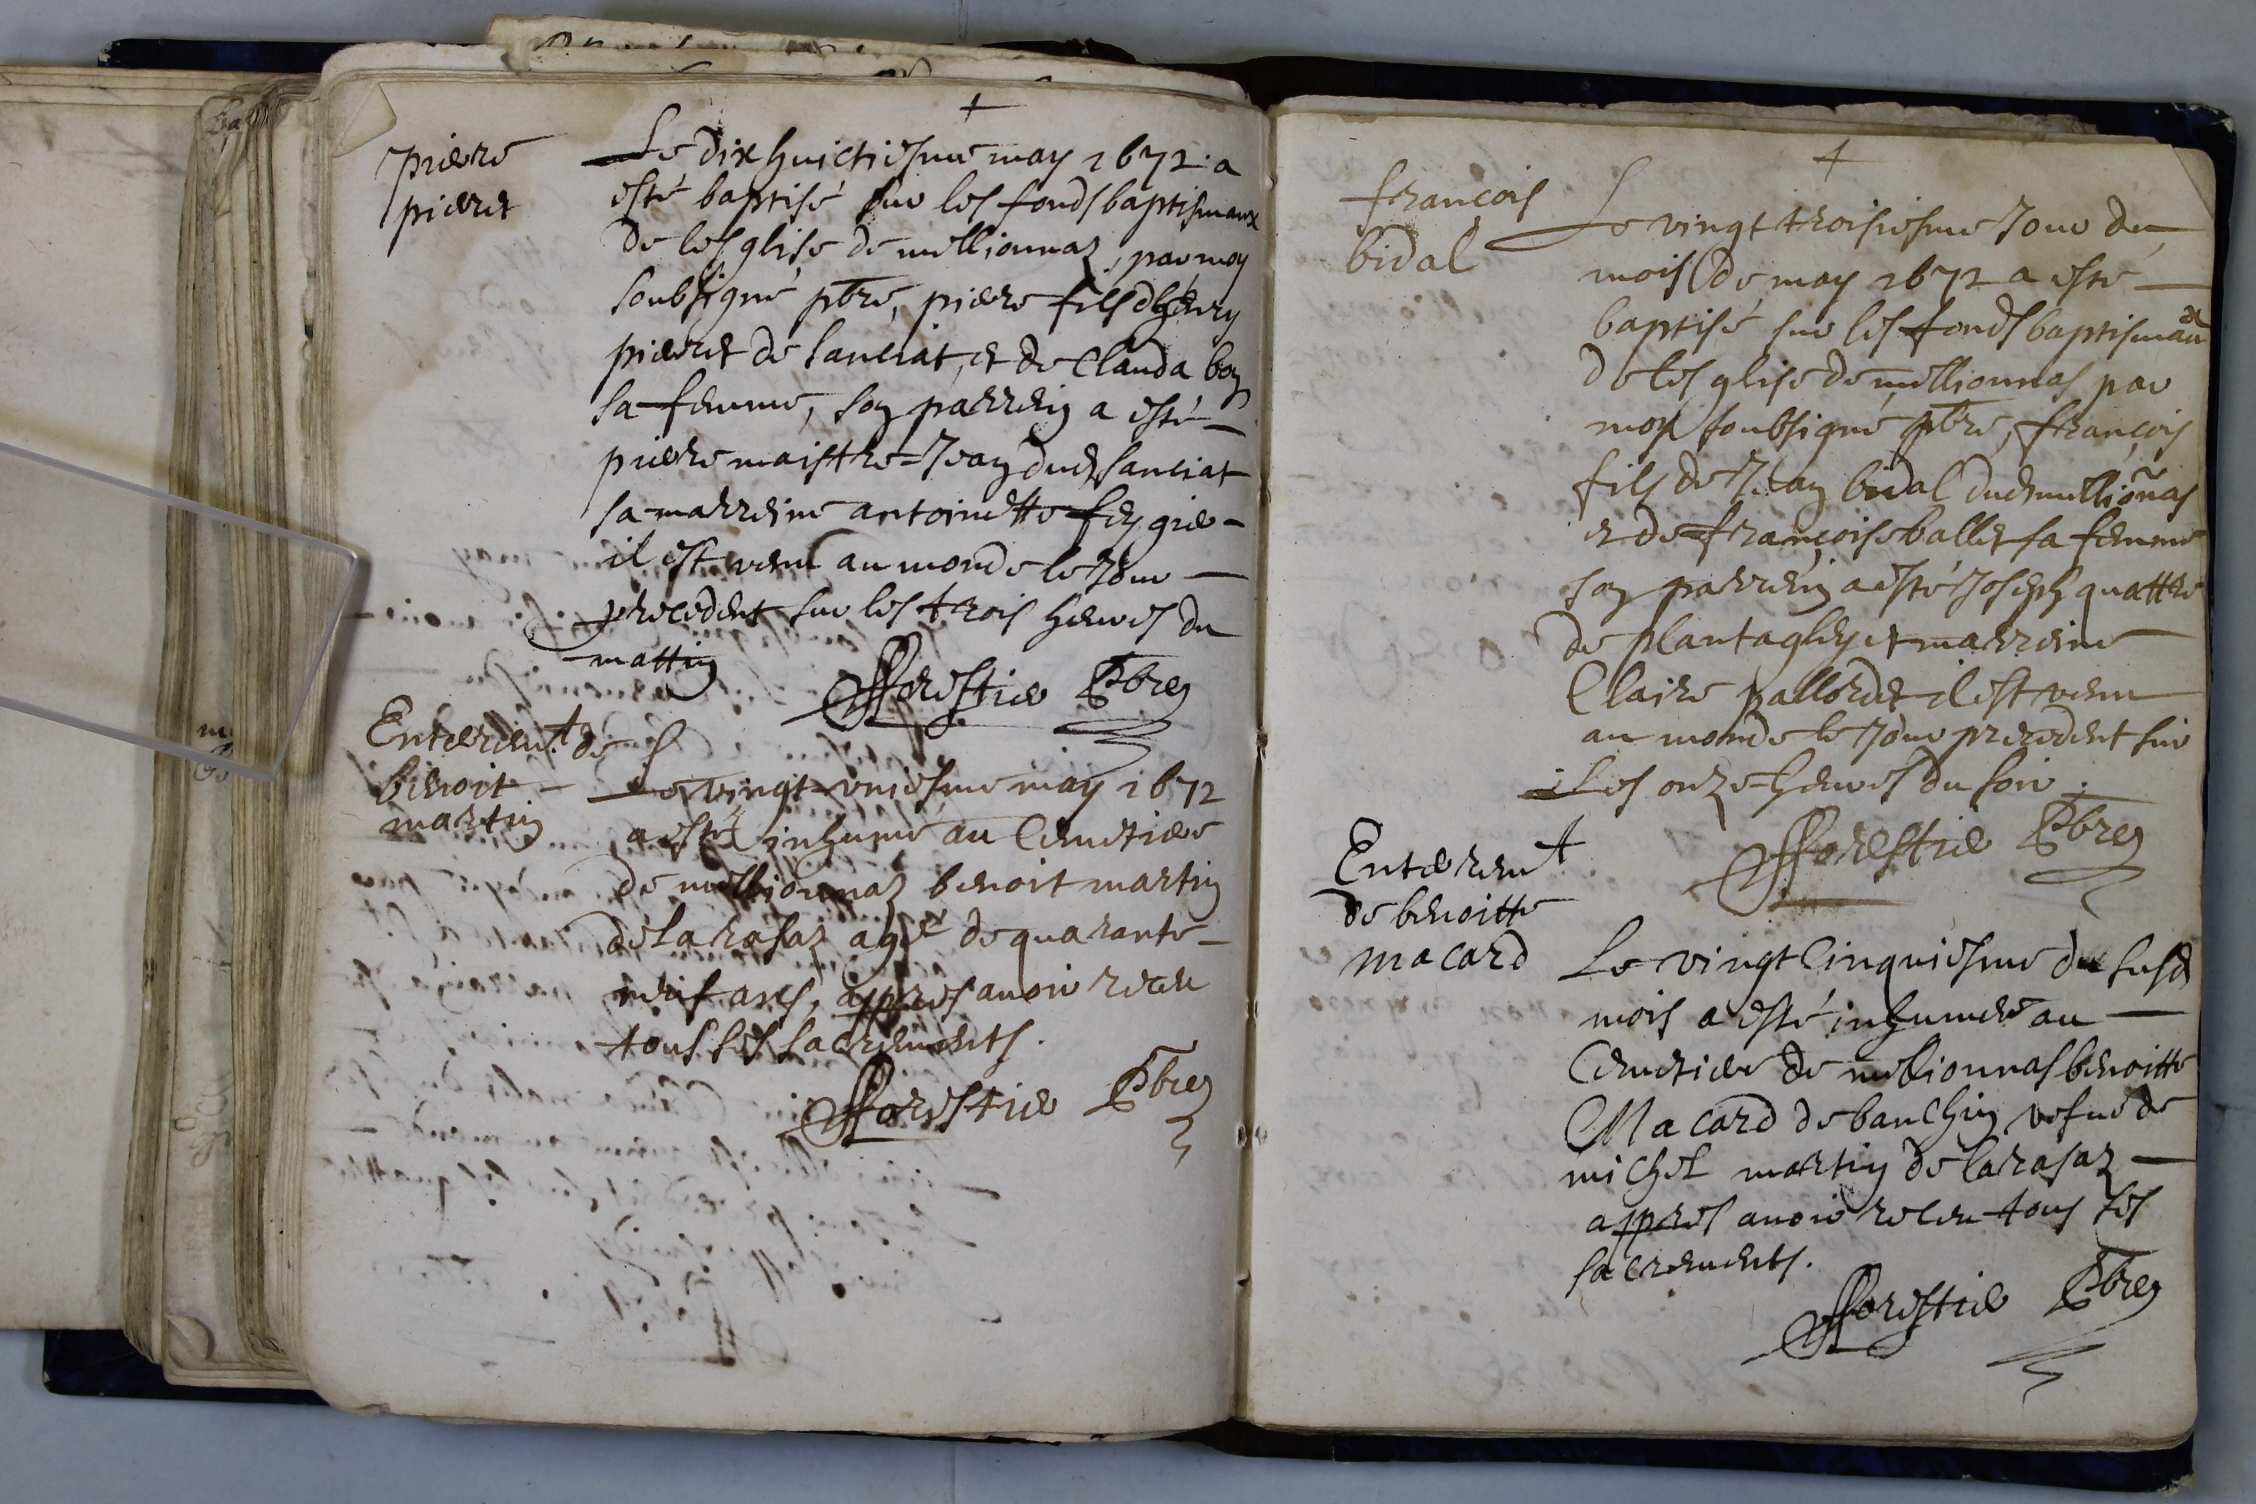 +
pierre
pieret
Le dix huictiesme may 1672 a
esté baptisé sur les fonds baptismaux
de lesglise de meillionnaz, par moy
soubsigné pbre, pierre fils dhenry
pieret de sanciat, et de Clauda boy
sa femme, son parrein a esté
pierre maistre-Jean dud sanciat
sa marreine antoinette feygie
il est venu au monde le Jour
precedent sur les trois heures du
mattin
fforestier Pbre
Enterem.t de
benoit
martin
Le vingt uniesme may 1672
a esté inhumé au Cemetiere
de meillionnaz benoit martin
de la rasaz agé de quarante
neuf ans, appres avoir receu
tous les sacrements.
fforestier Pbre
+
françois
bidal
Le vingt troisiesme Jour du
mois de may 1672 a esté
baptisé sur les fonds baptismaux
de lesglise de meillionnas par
moy soubsigné pbre, françois
fils de Jean bidal dud meillioñas
et de françoise ballet sa femme
son parrein a esté Joseph quattre
de plantaglhy et marreine
Claire palloret il est venu
au monde le Jour precedent sur
les onze heures du soir.
fforestier Pbre
Enterem.t
de benoitte
macard
Le vingt Cinquiesme du susd
mois a esté inhumée au
Cemetiere de meillionnas benoitte
Macard de bauchin vefue de
michel martin de la rasaz
appres avoir receu tous les
sacrements.
fforestier Pbre